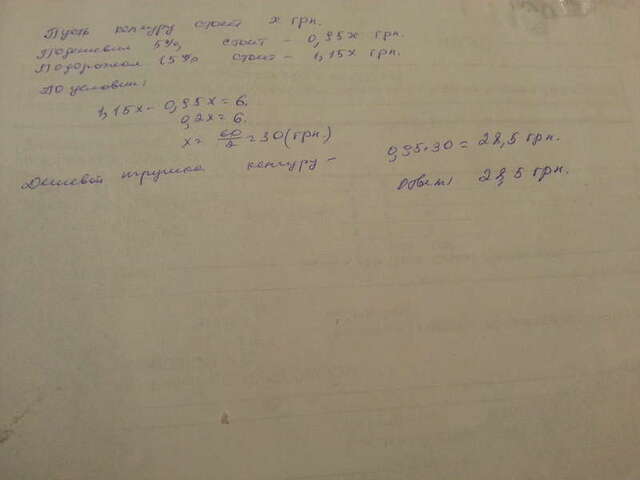 Пусть кенгуру стоит x грн.
Подешевел 5%, стоит – 0,95x грн.
Подорожал 15% стоит – 1,15x грн.
По условию:
1,15x – 0,95x = 6.
0,2x = 6.
x = 60/2 = 30 (грн)
Дешевой игрушка кенгуру – 0,95·30 = 28,5 грн.
Ответ: 28,5 грн.